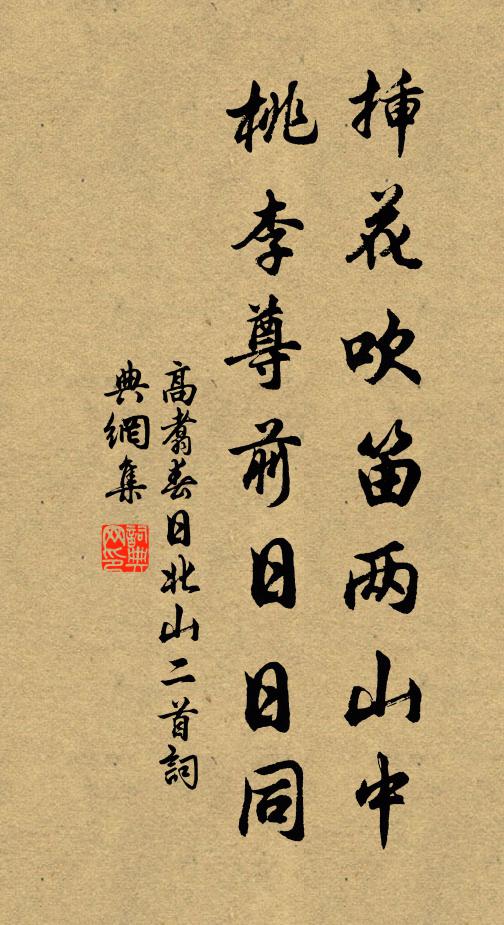 挿花吹笛两山中
桃李尊前日日同
高翥春日北山二首詞
典網集
詞典
网印